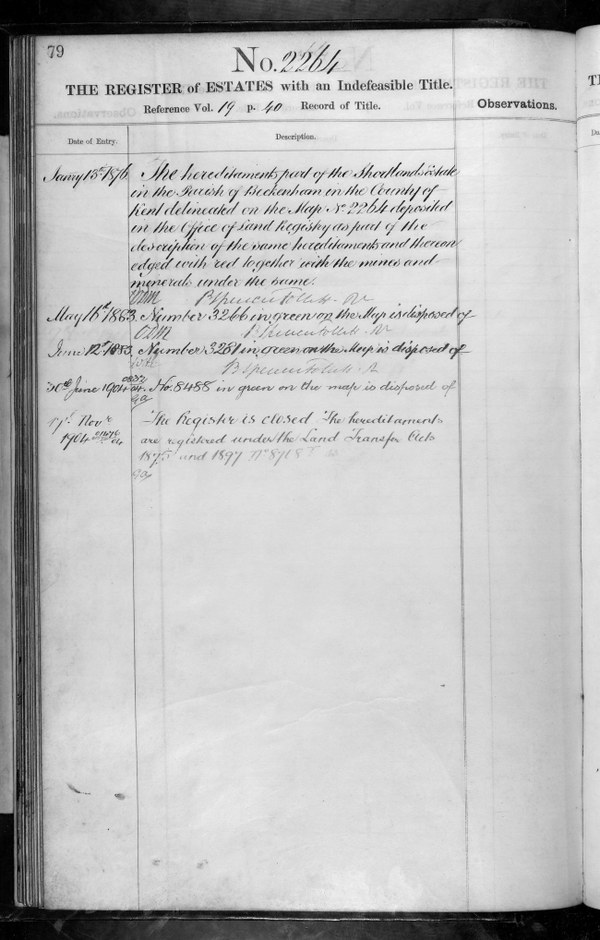 79
No. 2264
THE REGISTER of ESTATES with an Indefeasible Title.
Reference Vol. 19 p. 40 Record of Title.
Observations.
Date of Entry.
Description.
Jany 13th 1876 The hereditaments part of the Shortlands Estate
in the Parish of Beckenham in the County of
Kent delineated on the Map No 2264 deposited
in the Office of Land Registry as part of the
description of the same hereditaments and thereon
edged with red together with the mines and
minerals under the same.
May 16th 1883. Number 3266 in green on the Map is disposed of
June 12th 1883. Number 3281 in green on the Map is disposed of
30th June 1904 No. 8488 in green on the map is disposed of
17th Novr The Register is closed The hereditaments
1904 are registered under the Land Transfer Acts
1875 and 1897 No 8718